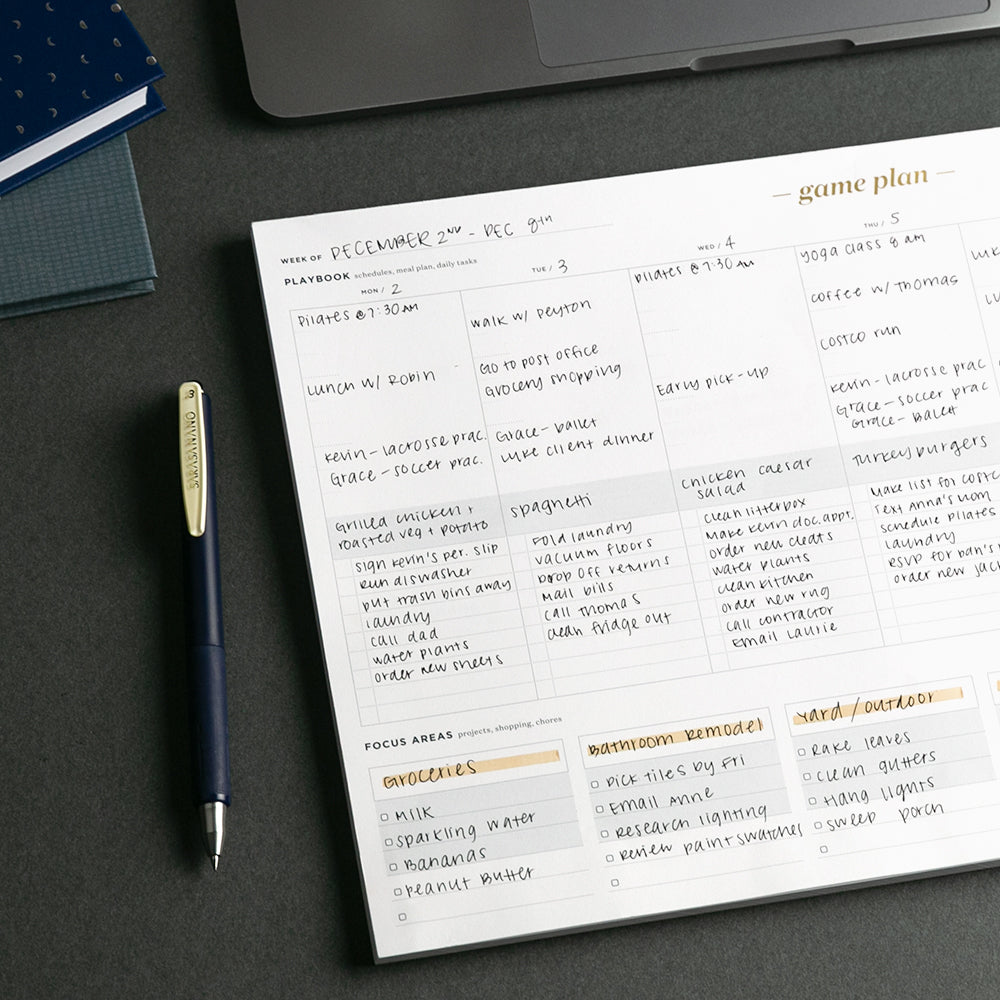 — game plan —
WEEK OF DECEMBER 2ND - DEC 8TH
PLAYBOOK schedules, meal plan, daily tasks
MON / 2
Pilates @ 7:30 AM
Lunch w/ Robin
Kevin - lacrosse prac.
Grace - soccer prac.
Grilled chicken +
roasted veg + potato
Sign Kevin's per. slip
Run diswasher
put trash bins away
laundry
call dad
water plants
order new sheets
TUE / 3
Walk w/ Peyton
Go to post office
Grocery shopping
Grace - ballet
Luke client dinner
spaghetti
Fold laundry
vacuum floors
Drop off returns
Mail bills
call Thomas
clean fridge out
WED / 4
Pilates @ 7:30 AM
Early pick-up
chicken caesar
salad
Clean litterbox
Make Kevin doc. appt.
order new cleats
water plants
clean kitchen
order new rug
call contractor
Email Laurie
THU / 5
yoga class 8 am
coffee w/ Thomas
Costco run
Kevin - lacrosse prac
Grace - soccer prac
Grace - Ballet
Turkey burgers
Make list for costc
Text Anna's mom
schedule pilates
laundry
RSVP for Dan's
order new jac
FOCUS AREAS projects, shopping, chores
Groceries
Milk
sparkling water
Bananas
Peanut Butter
Bathroom Remodel
Pick tiles by Fri
Email Anne
Research lighting
Review paint swatches
Yard / outdoor
Rake leaves
Clean gutters
Hang lights
Sweep porch